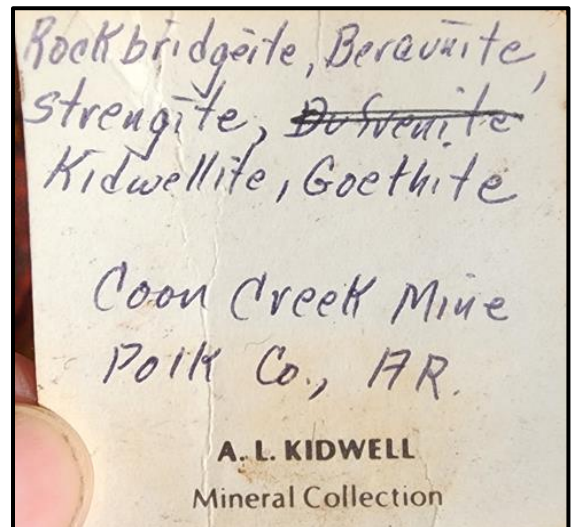 Rockbridgeite, Beraunite,
strengite, Dufrenite
Kidwellite, Goethite
Coon Creek Mine
Polk Co., AR.
A. L. KIDWELL
Mineral Collection